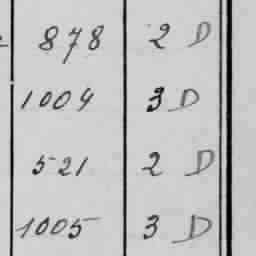 878 2 D
1004 3 D
521 2 D
1005 3 D